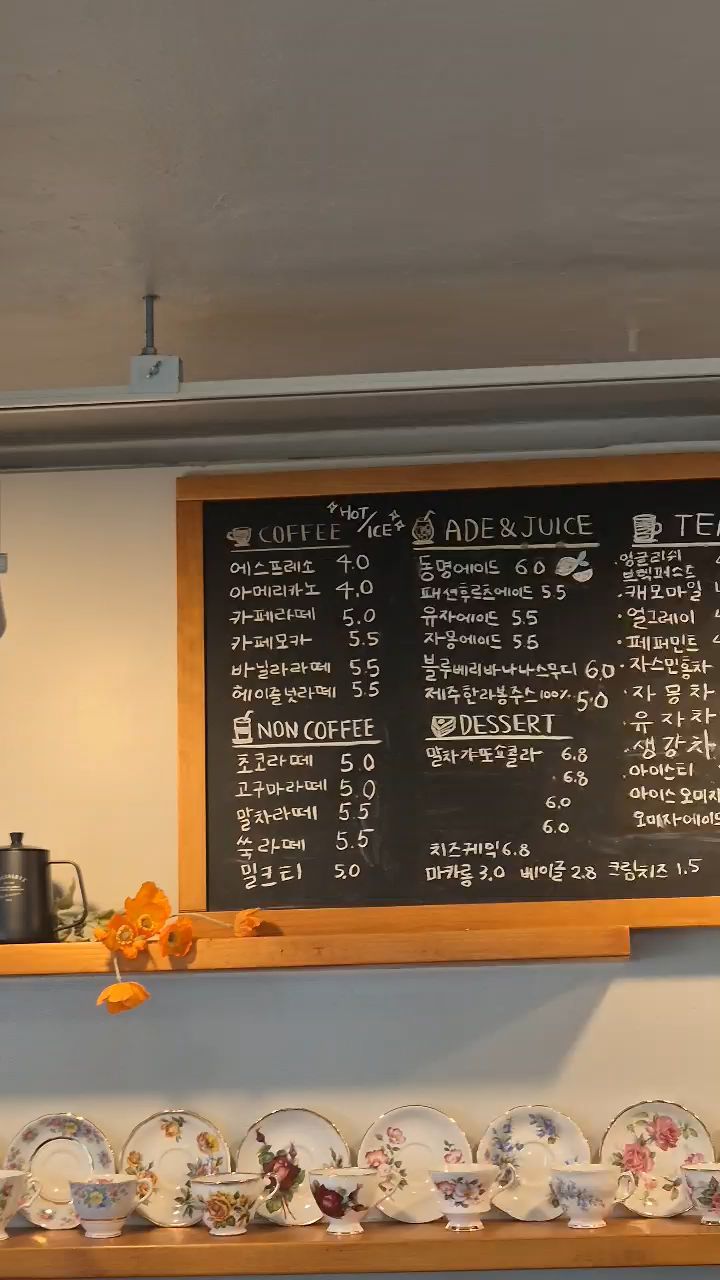 COFFEE HOT/ICE
에스프레소 4.0
아메리카노 4.0
카페라떼 5.0
카페모카 5.5
바닐라라떼 5.5
헤이즐넛라떼 5.5
NON COFFEE
초코라떼 5.0
고구마라떼 5.0
말차라떼 5.5
쑥라떼 5.5
밀크티 5.0
ADE & JUICE
동명에이드 6.0
패션후르츠에이드 5.5
유자에이드 5.5
자몽에이드 5.5
블루베리바나나스무디 6.0
제주한라봉주스 100% 5.0
DESSERT
말차가또쇼콜라 6.8
6.8
6.0
6.0
치즈케익 6.8
마카롱 3.0 베이글 2.8 크림치즈 1.5
TEA
·잉글리쉬
브렉퍼스트
·캐모마일
·얼그레이
·페퍼민트
·자스민홍차
·자몽차
·유자차
·생강차
·아이스티
아이스오미자
오미자에이드